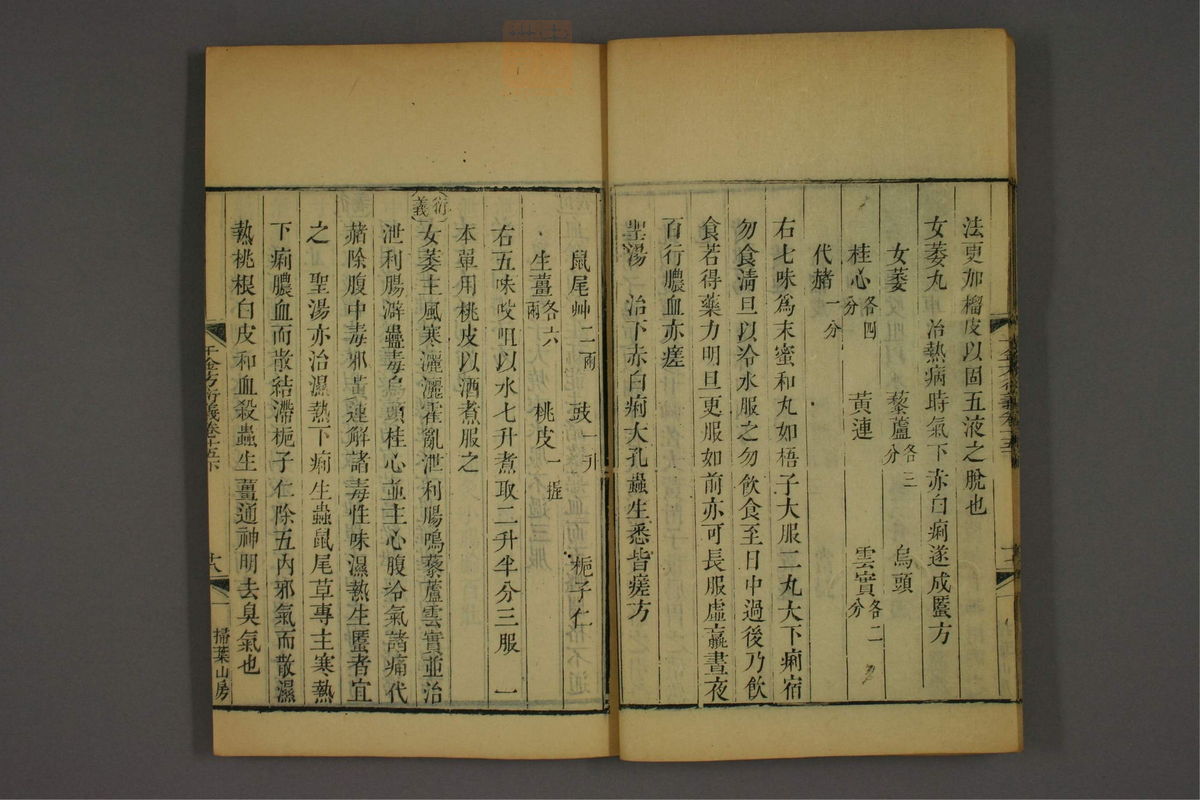 法更加榴皮以固五液之脫也
女萎丸　治熱病時氣下赤白痢遂成䘌方
女萎　藜蘆各三分　烏頭
桂心各四分　黃連　雲實各二分
代赭一分
右七味爲末蜜和丸如梧子大服二丸大下痢宿
勿食清旦以冷水服之勿飲食至日中過後乃飲
食若得藥力明旦更服如前亦可長服虛羸晝夜
百行膿血亦瘥
聖湯　治下赤白痢大孔蟲生悉皆瘥方
鼠尾艸二兩　豉一升　梔子仁
生薑各六兩　桃皮一握
右五味㕮咀以水七升煮取二升半分三服　一
本單用桃皮以酒煮服之
衍義 女萎主風寒灑灑霍亂泄利腸鳴藜蘆雲實並治
泄利腸澼蠱毒烏頭桂心並主心腹冷氣諸痛代
赭除腹中毒邪黃連解諸毒性味濕熱生䘌者宜
之　聖湯亦治濕熱下痢生蟲鼠尾草專主寒熱
下痢膿血而散結滯梔子仁除五內邪氣而散濕
熱桃根白皮和血殺蟲生薑通神明去臭氣也
千金方衍義卷十五下　十八　掃葉山房